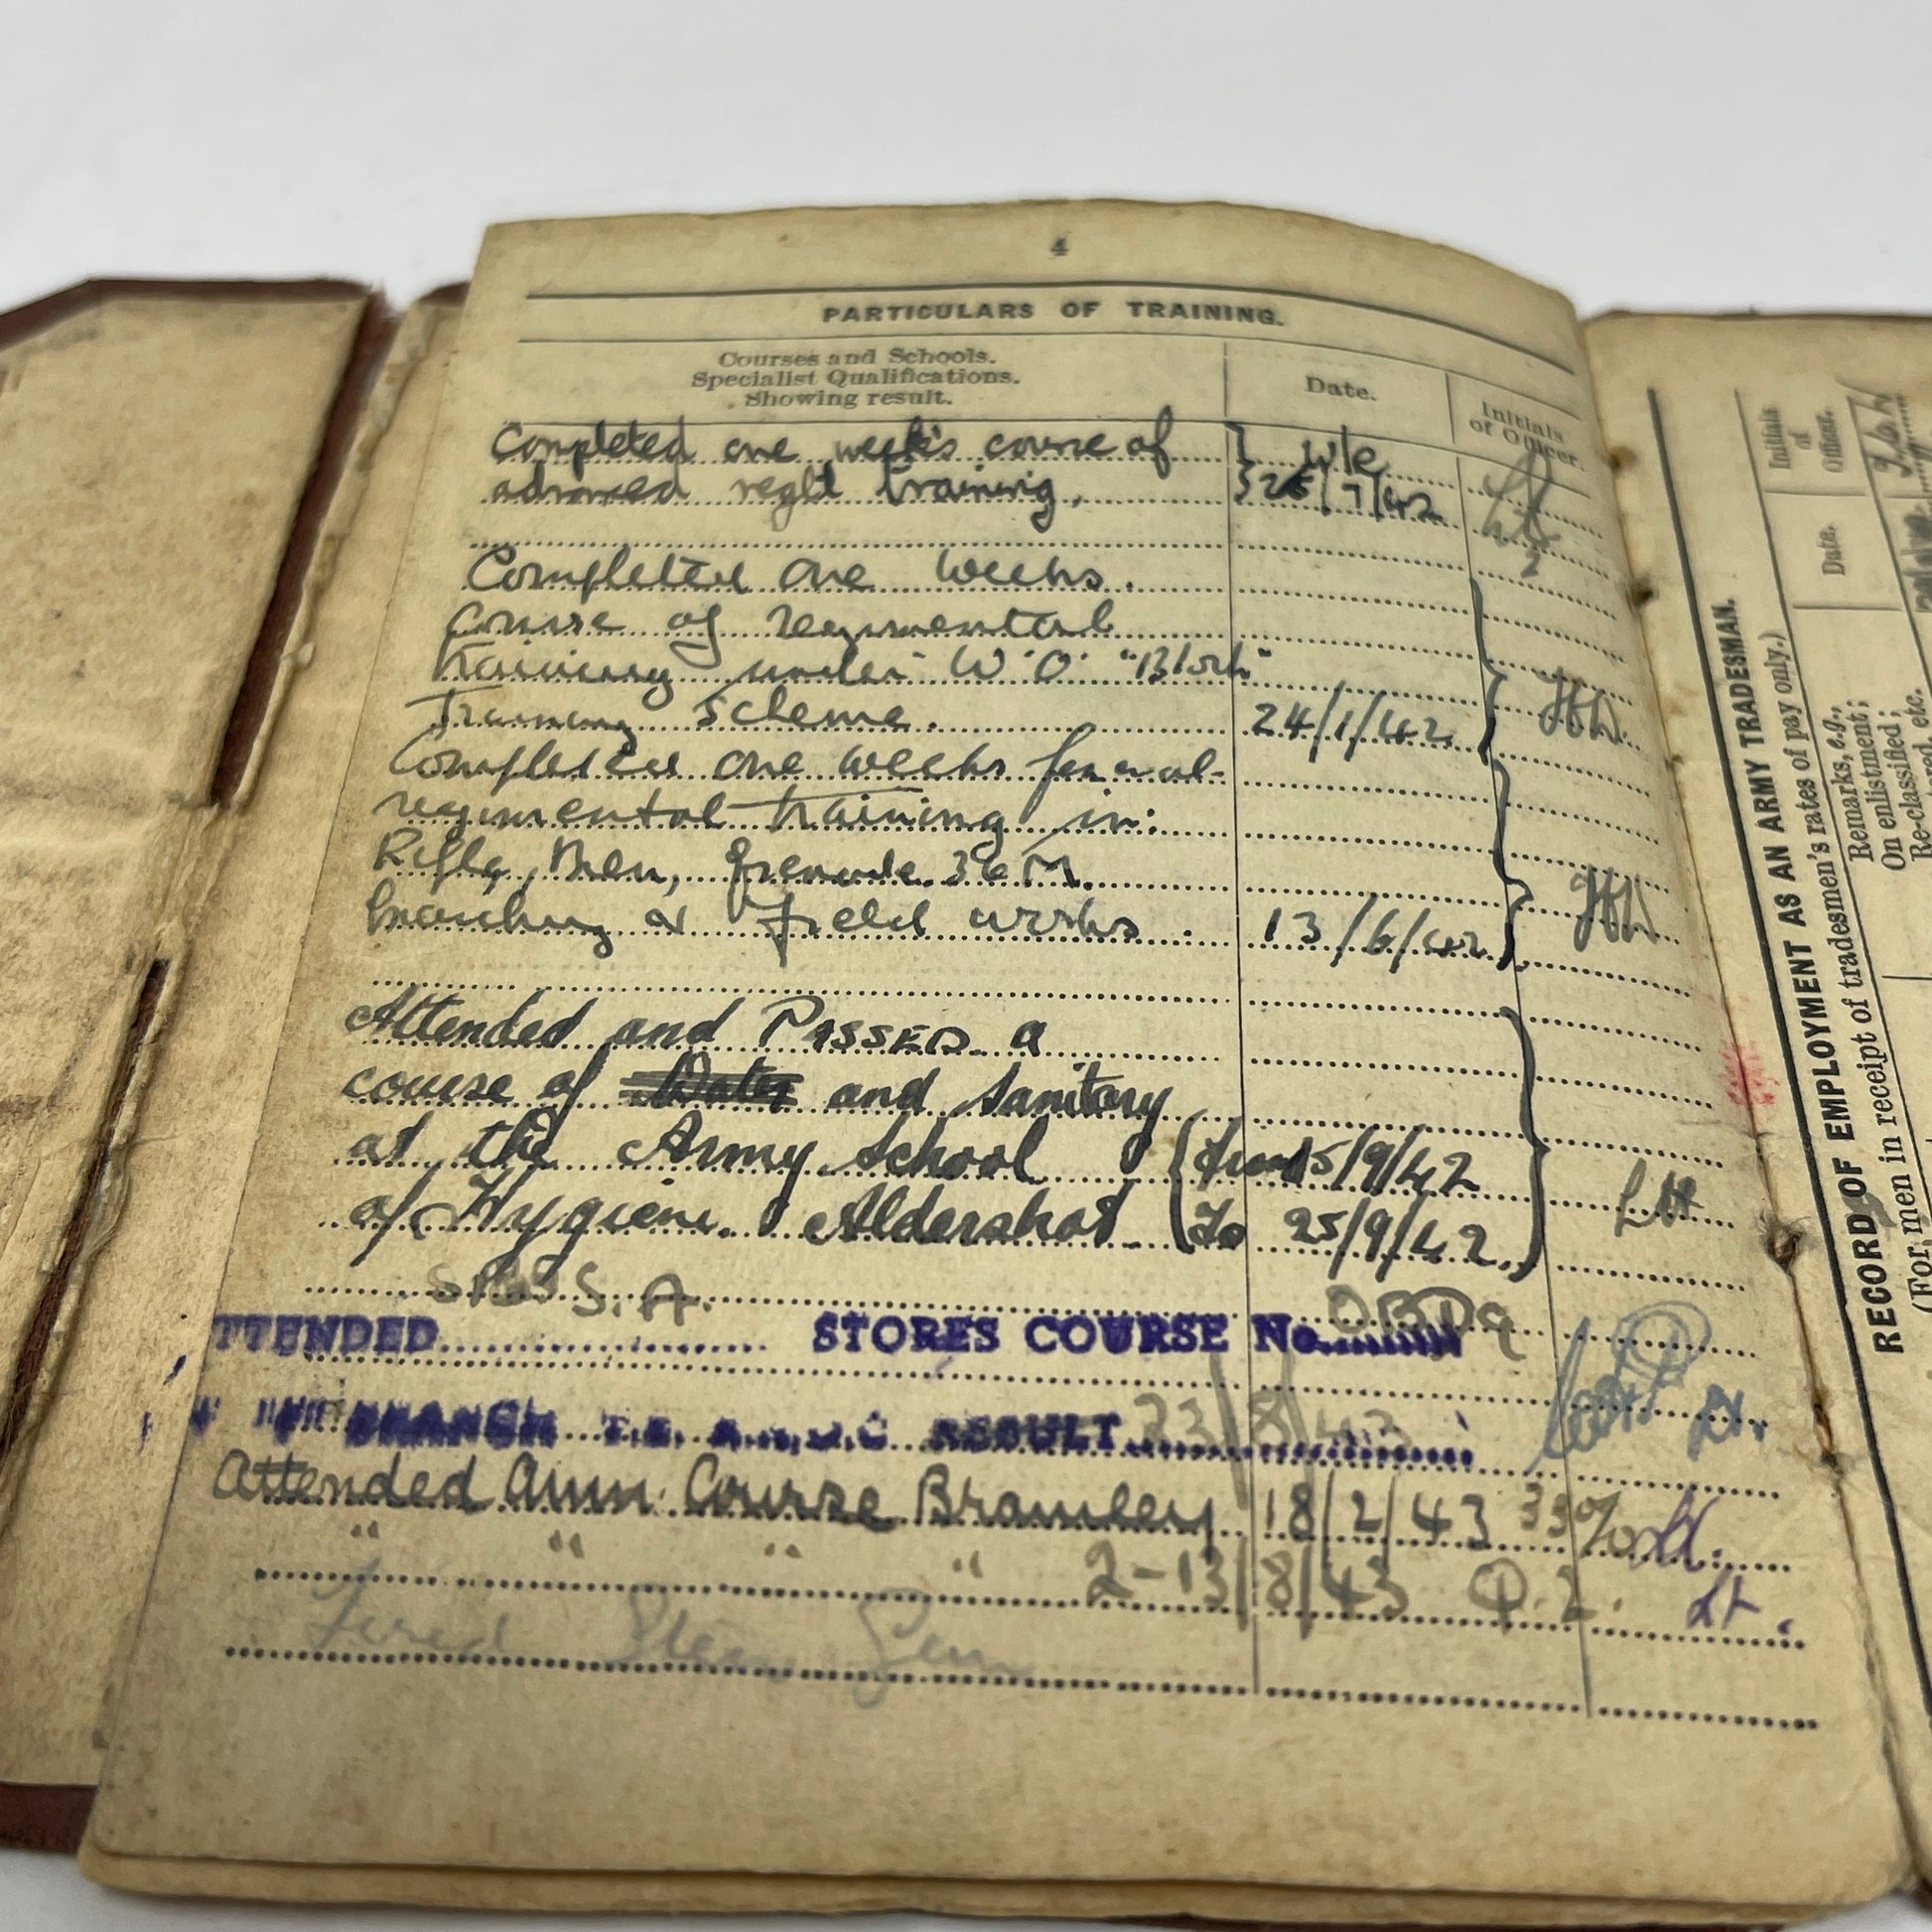 4
PARTICULARS OF TRAINING.
Courses and Schools.
Specialist Qualifications.
Showing result.
Date.
Initials
of Officer.
Completed one week's course of } w/e
advanced regtl training, } 25/7/42
Completed one weeks
course of regimental
training under W.O. "Block"
Training Scheme. 24/1/42
Completed one weeks general
regimental training in:
Rifle, Bren, Grenade 36 M.
marching & field works 13/6/42
Attended and PASSED a
course of and Sanitary
at the Army School { from 15/9/42
of Hygiene. Aldershot { To 25/9/42 LH
S.A.
TTENDED STORES COURSE No.
BRANCH RESULT 23/8/43
Attended Amm. Course Bramley 18/2/43 33% Lt.
" " " " 2-13/8/43 Q.2. Lt.
Fired Sten Gun
RECORD OF EMPLOYMENT AS AN ARMY TRADESMAN.
(For men in receipt of tradesmen's rates of pay only.)
Remarks, e.g.,
On enlistment;
Re-classified;
etc.
Date.
Initials
of
Officer.